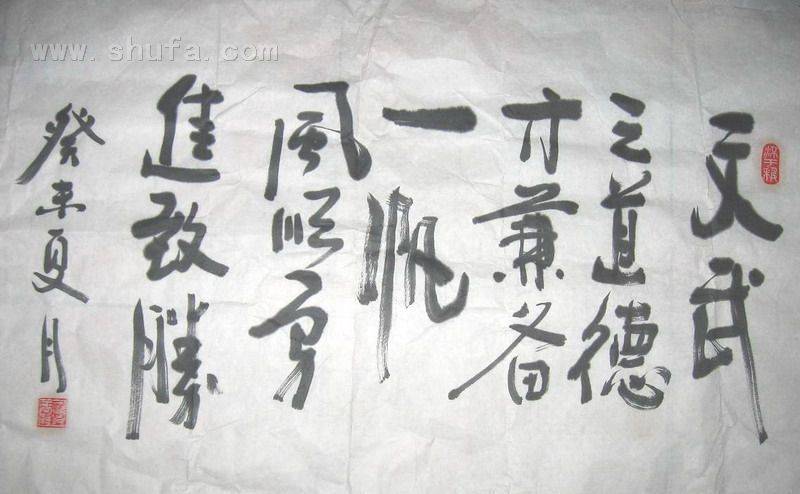 www.shufa.com
文武
之道德
才兼备
一帆
風順勇
進致勝
癸未夏月